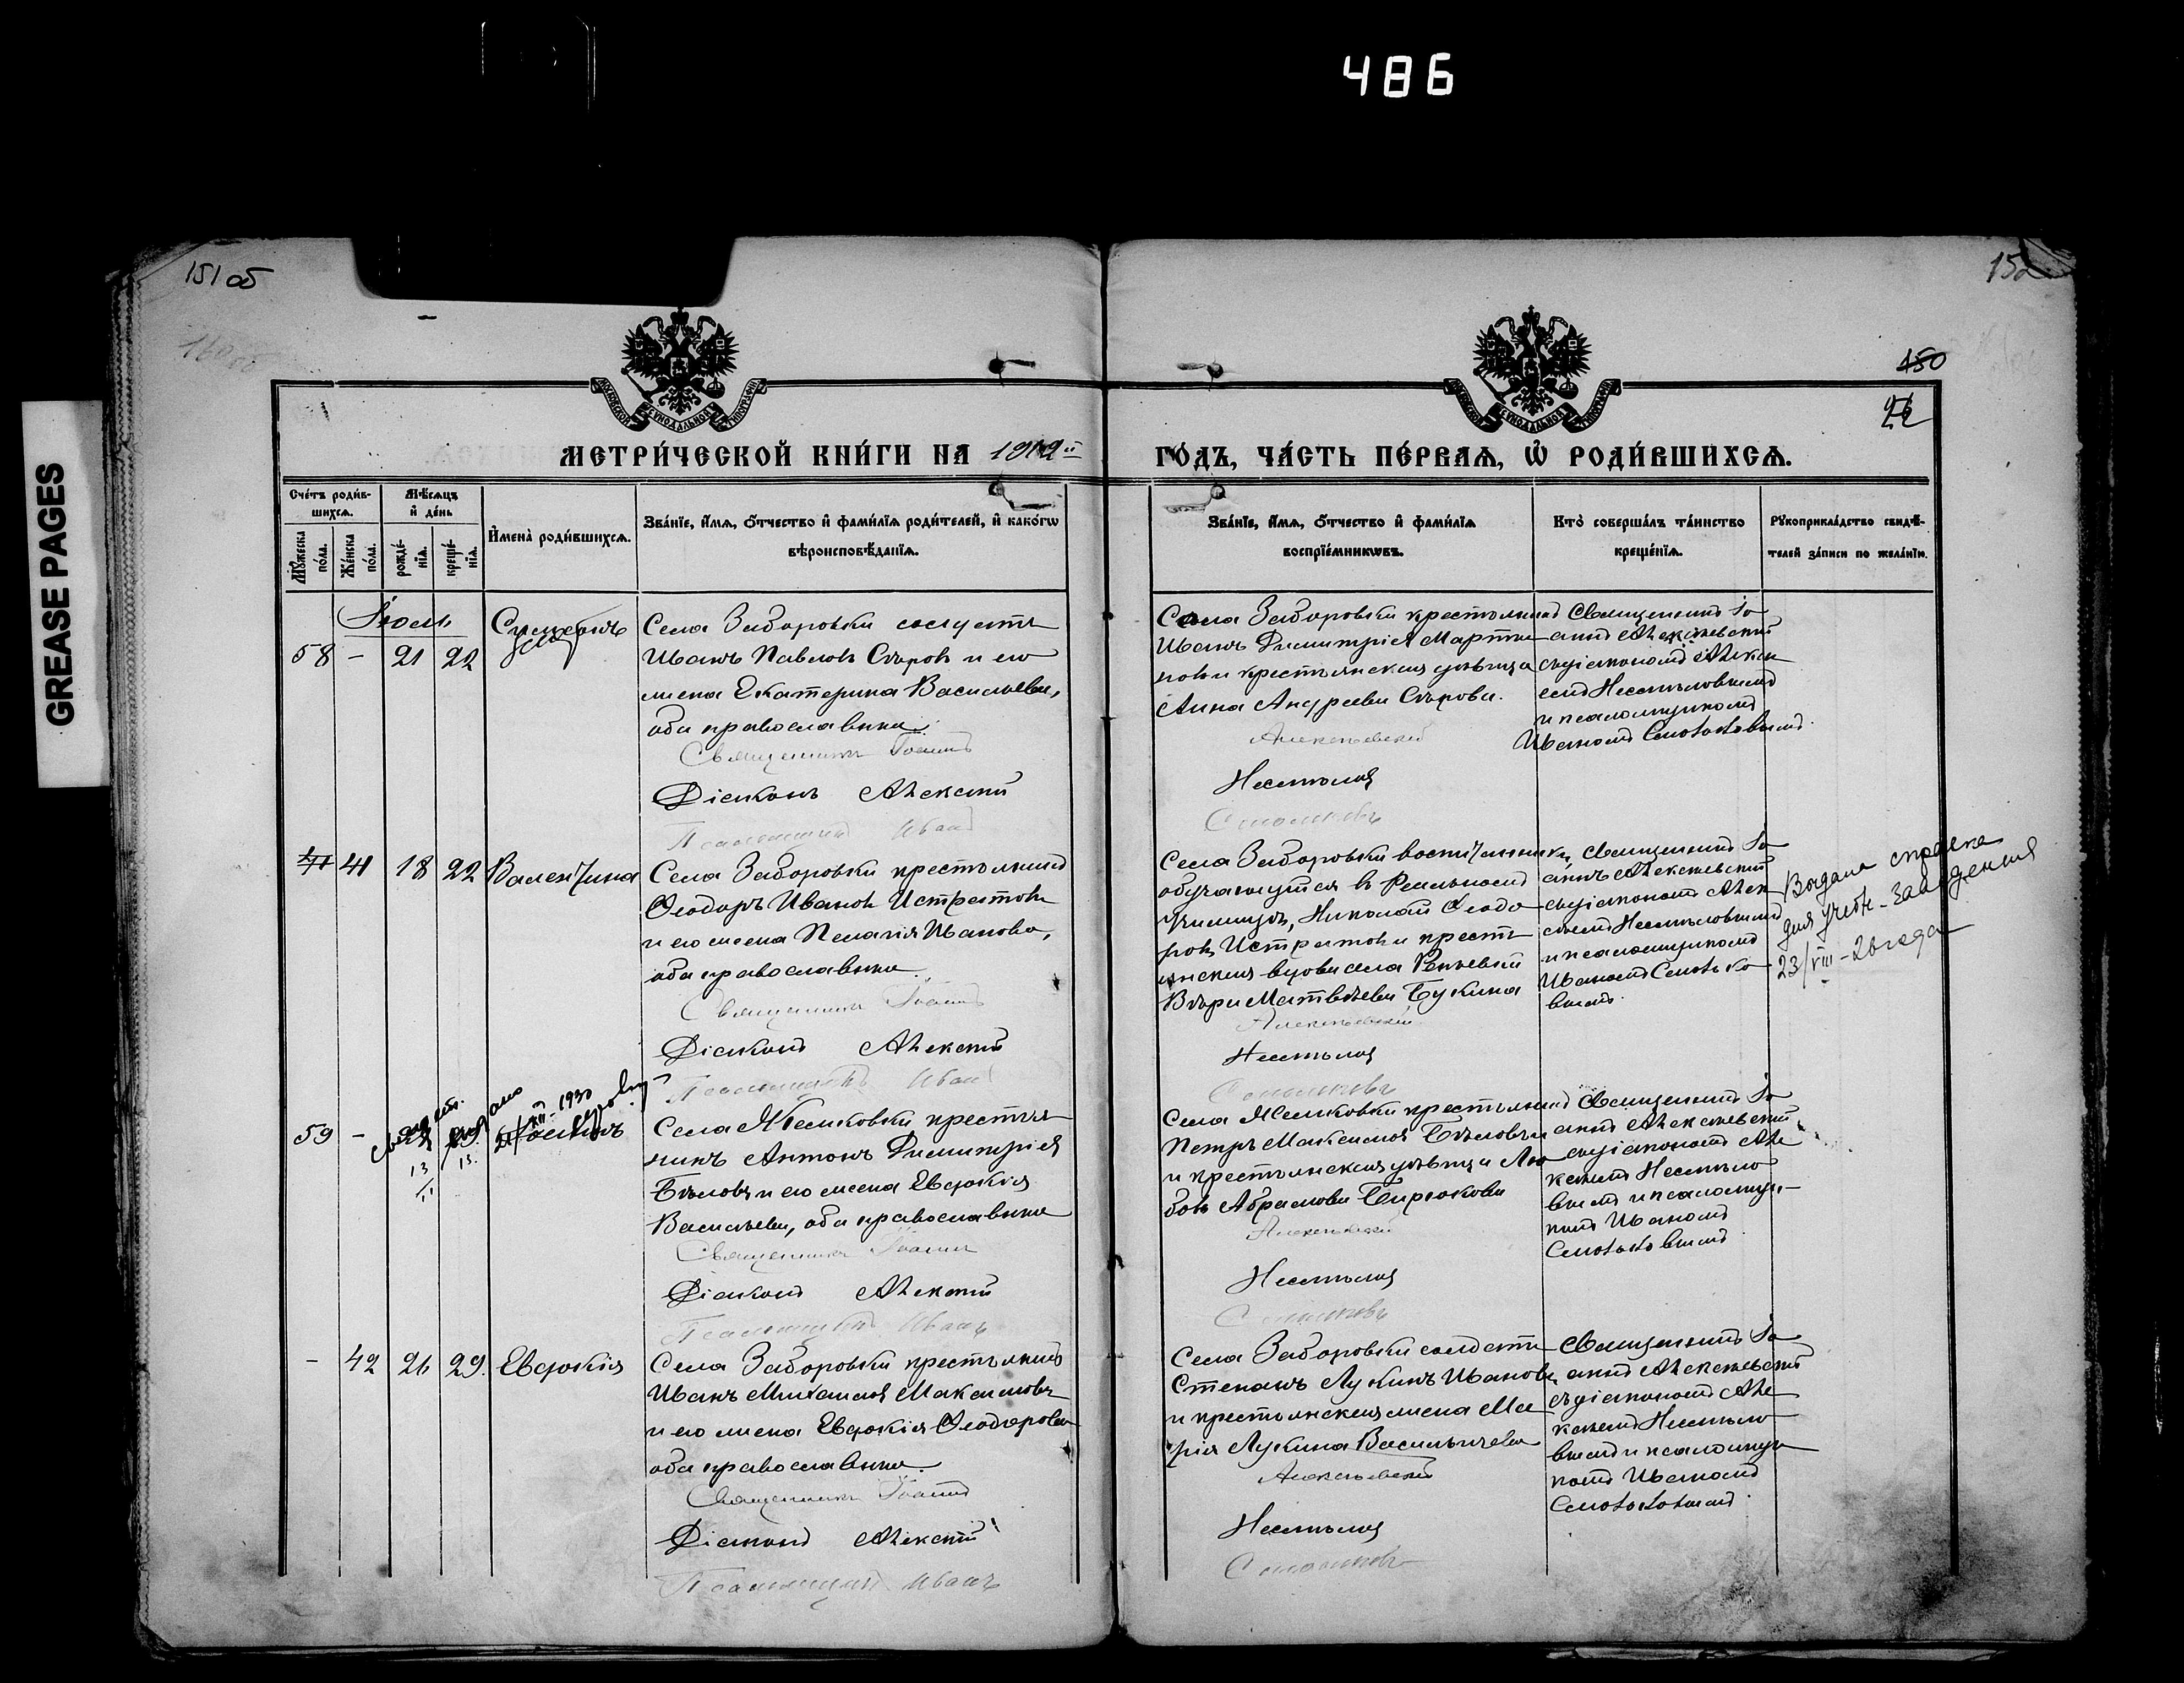 486
GREASE PAGES
151 об
152
150
МЕТРИ́ЧЕСКОЙ КНИ́ГИ НА 1912
ГО́ДЪ, ЧА́СТЬ ПЕ́РВАѦ, Ѡ҆ РОДИ́ВШИХСѦ.
Сче́тъ роди́вшихсѧ.
Мꙋ́жеска по́ла.
Же́нска по́ла.
Мѣ́сѧцъ и҆ де́нь
рожде́нїѧ.
креще́нїѧ.
И҆мена̀ роди́вшихсѧ.
Зва́нїе, и҆́мѧ, ѻ҆́тчество и҆ фами́лїѧ роди́телей, и҆ како́гѡ
вѣроисповѣ́данїѧ.
Зва́нїе, и҆́мѧ, ѻ҆́тчество и҆ фами́лїѧ
воспрїе́мникѡвъ.
Кто̀ соверша́лъ та́инство
креще́нїѧ.
Рꙋкоприкла́дство свидѣ́-
телей за́писи по жела́нїю.
Іюль
58 - 21 22
Симеонъ
Села Заборовки солдатъ
Иванъ Павловъ Съровъ и его
жена Екатерина Васильева,
оба православные.
Священникъ Іоаннъ
Діаконъ Алексѣй
Псаломщикъ Иванъ
Села Заборовки крестьянинъ
Иванъ Димитріевъ Марты-
новъ и крестьянская дѣвица
Анна Андреева Сърова.
Алексѣевскій
Несмѣловъ
Священникъ Іо-
аннъ Алексѣевскій
съ діакономъ Алек-
сѣемъ Несмѣловымъ
и псаломщикомъ
Иваномъ
41 18 22 Валентина
Села Заборовки крестьянинъ
Ѳеодоръ Ивановъ Истратовъ
и его жена Пелагія Иванова,
оба православные.
Священникъ Іоаннъ
Діаконъ Алексѣй
Псаломщикъ Иванъ
Села Заборовки
обучающійся въ Реальномъ
Училищѣ, Николай Ѳеодо-
ровъ Истратовъ и кресть-
янская вдова села Репьевки
Вѣра Матвѣева Букина
Алексѣевскій
Несмѣловъ
Священникъ Іо-
аннъ Алексѣевскій
съ діакономъ Алек-
сѣемъ Несмѣловымъ
и псаломщикомъ
Иваномъ
Выдана справка
для учебн. заведения
23/VIII - 26 года
59 -
1930
Села Жемковки крестья-
нинъ Антонъ Димитріевъ
Бѣловъ и его жена Евдокія
Васильева, оба православные
Священникъ Іоаннъ
Діаконъ Алексѣй
Псаломщикъ Иванъ
Села Жемковки крестьянинъ
Петръ Максимовъ Бѣловъ
и крестьянская дѣвица Лю-
бовь Абрамова Бирюкова
Алексѣевскій
Несмѣловъ
Священникъ Іо-
аннъ Алексѣевскій
съ діакономъ Але-
ксѣемъ Несмѣло-
вымъ и псаломщи-
комъ Иваномъ
- 42 26 29. Евдокія
Села Заборовки крестьянинъ
Иванъ Михаиловъ Максимовъ
и его жена Евдокія Ѳеодорова
оба православные.
Священникъ Іоаннъ
Діаконъ Алексѣй
Псаломщикъ Иванъ
Села Заборовки солдатъ
Степанъ Лукинъ Ивановъ
и крестьянская жена Ма-
рія Лукина Васильичева
Алексѣевскій
Несмѣловъ
Священникъ Іо-
аннъ Алексѣевскій
съ діакономъ Але-
ксѣемъ Несмѣло-
вымъ и псаломщи-
комъ Иваномъ